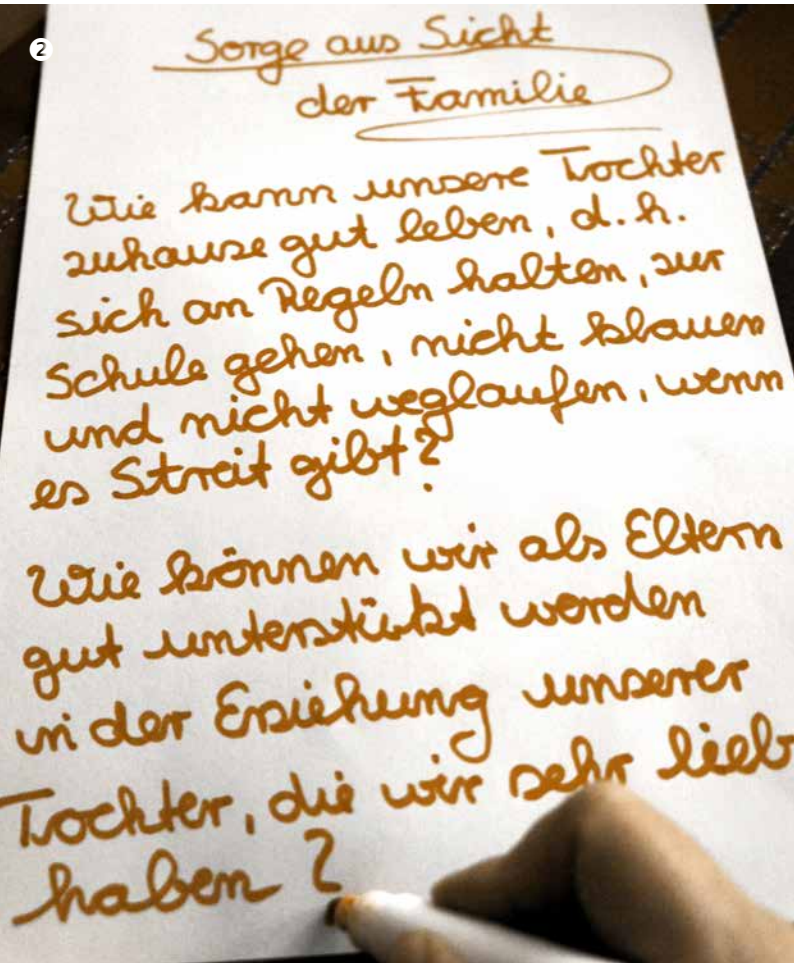 2
Sorge aus Sicht
der Familie
Wie kann unsere Tochter
zuhause gut leben, d.h.
sich an Regeln halten, zur
Schule gehen, nicht klauen
und nicht weglaufen, wenn
es Streit gibt?
Wie können wir als Eltern
gut unterstützt werden
in der Erziehung unserer
Tochter, die wir sehr lieb
haben?